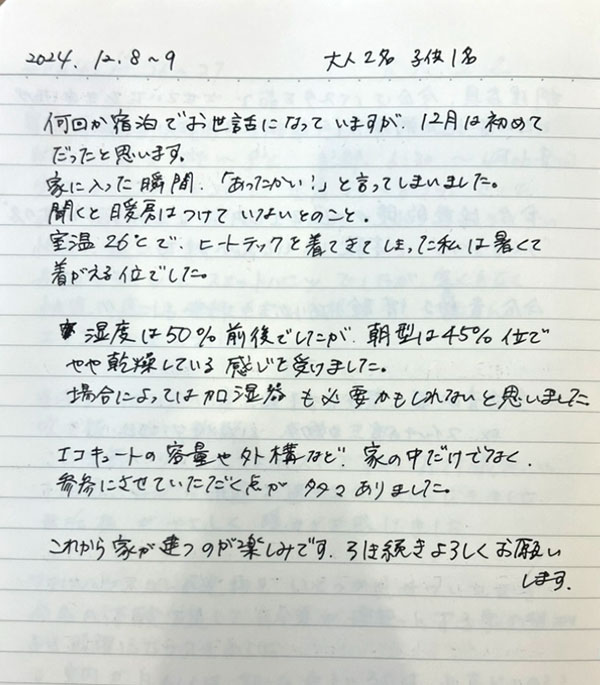 2024. 12. 8～9 大人2名 子供1名
何回か宿泊でお世話になっていますが、12月は初めて
だったと思います。
家に入った瞬間、「あったかい！」と言ってしまいました。
聞くと暖房はつけていないとのこと。
室温26℃で、ヒートテックを着てきてしまった私は暑くて
着がえる位でした。
湿度は50%前後でしたが、朝型は45%位で
やや乾燥している感じを受けました。
場合によっては加湿器も必要かもしれないと思いました
エコキュートの容量や外構など、家の中だけでなく、
参考にさせていただく点が多々ありました。
これから家が建つのが楽しみです。引き続きよろしくお願い
します。